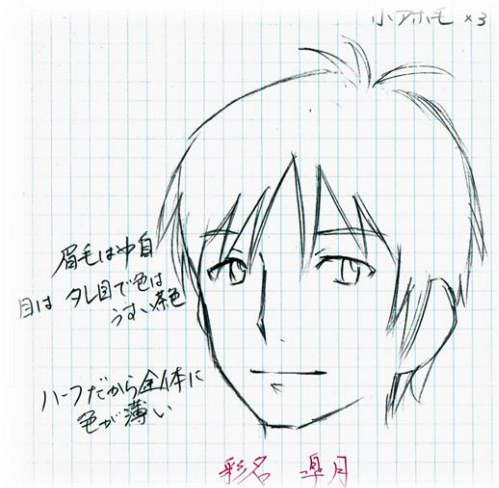 小アホ毛 ×3
眉毛は中自
目は タレ目で色は
うすい茶色
ハーフだから全体に
色が薄い
彩名 皐月